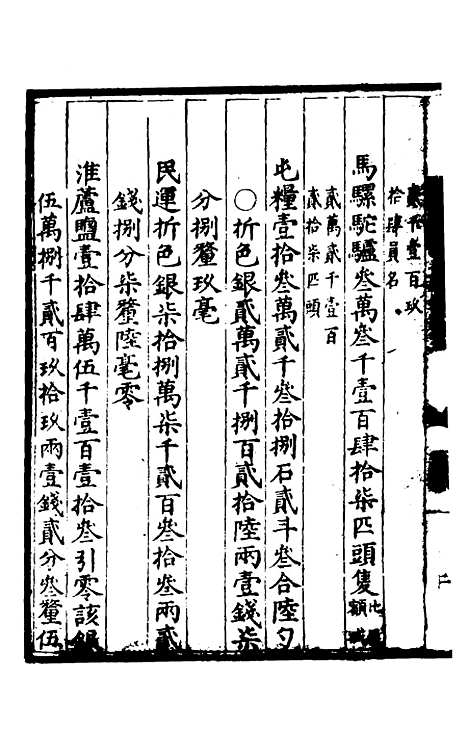 貳千壹百玖
拾肆員名
馬騾駝驢叁萬叁千壹百肆拾柒匹頭隻比舊額減
貳萬貳千壹百
貳拾柒匹頭
屯糧壹拾叁萬貳千叁拾捌石貳斗叁合陸勺
○折色銀貳萬貳千捌百貳拾陸兩壹錢柒
分捌釐玖毫
民運折色銀柒拾捌萬柒千貳百叁拾叁兩貳
錢捌分柒釐陸毫零
淮蘆鹽壹拾肆萬伍千壹百壹拾叁引零該銀
伍萬捌千貳百玖拾玖兩壹錢貳分叁釐伍